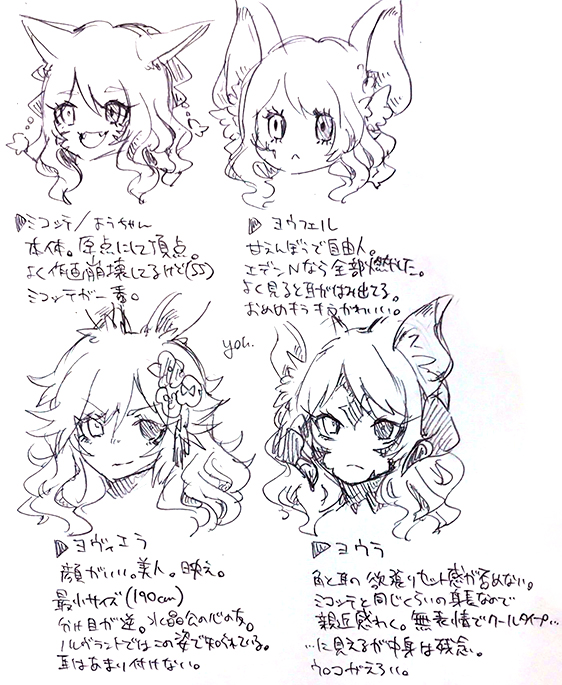 ▶ミコッテ/ようちゃん
本体。原点にして頂点。
よく作画崩壊してるけど(SS)
ミコッテが一番。
▶ヨウフェル
甘えんぼうで自由人。
エデンNなら全部燃やした。
よく見ると耳がはみ出てる。
おめめキラキラかわいい。
you.
▶ヨヴィエラ
顔がいい。美人。映え。
最小サイズ(190cm)
分け目が逆。水晶公の心の友。
ノルヴラントではこの姿で知られている。
耳はあまり付けない。
▶ヨウラ
角と耳の欲張りセット感が否めない。
ミコッテと同じくらいの身長なので
親近感わく。無表情でクールタイプ…
…に見えるが中身は残念。
ウロコがえろい。